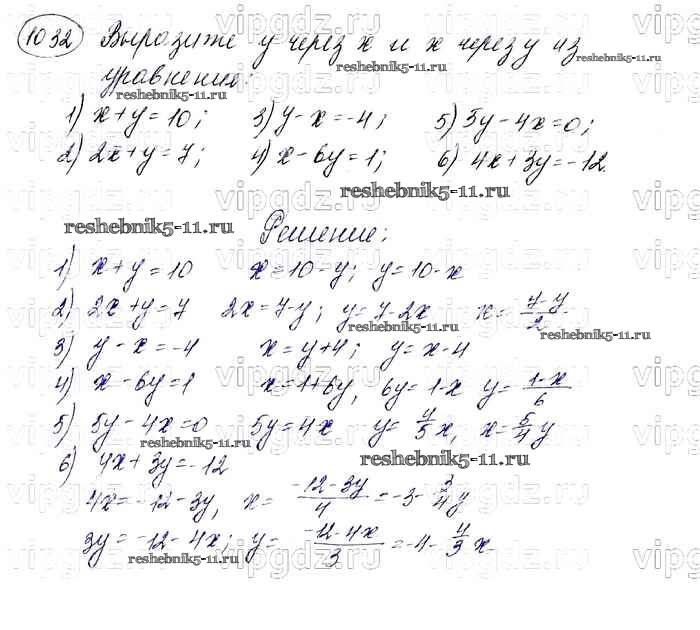 1032 Выразите y через x и x через y из
уравнения:
1) x+y=10; 3) y-x=-4; 5) 5y-4x=0;
2) 2x+y=7; 4) x-6y=1; 6) 4x+3y=-12.
Решение:
1) x+y=10 x=10-y; y=10-x
2) 2x+y=7 2x=7-y; y=7-2x x=\frac{7-y}{2}
3) y-x=-4 x=y+4; y=x-4
4) x-6y=1 x=1+6y, 6y=1-x y=\frac{1-x}{6}
5) 5y-4x=0 5y=4x y=\frac{4}{5}x, x=\frac{5}{4}y
6) 4x+3y=-12
4x=-12-3y, x=\frac{-12-3y}{4}=-3-\frac{3}{4}y
3y=-12-4x; y=\frac{-12-4x}{3}=-4-\frac{4}{3}x
reshebnik5-11.ru
vipgdz.ru